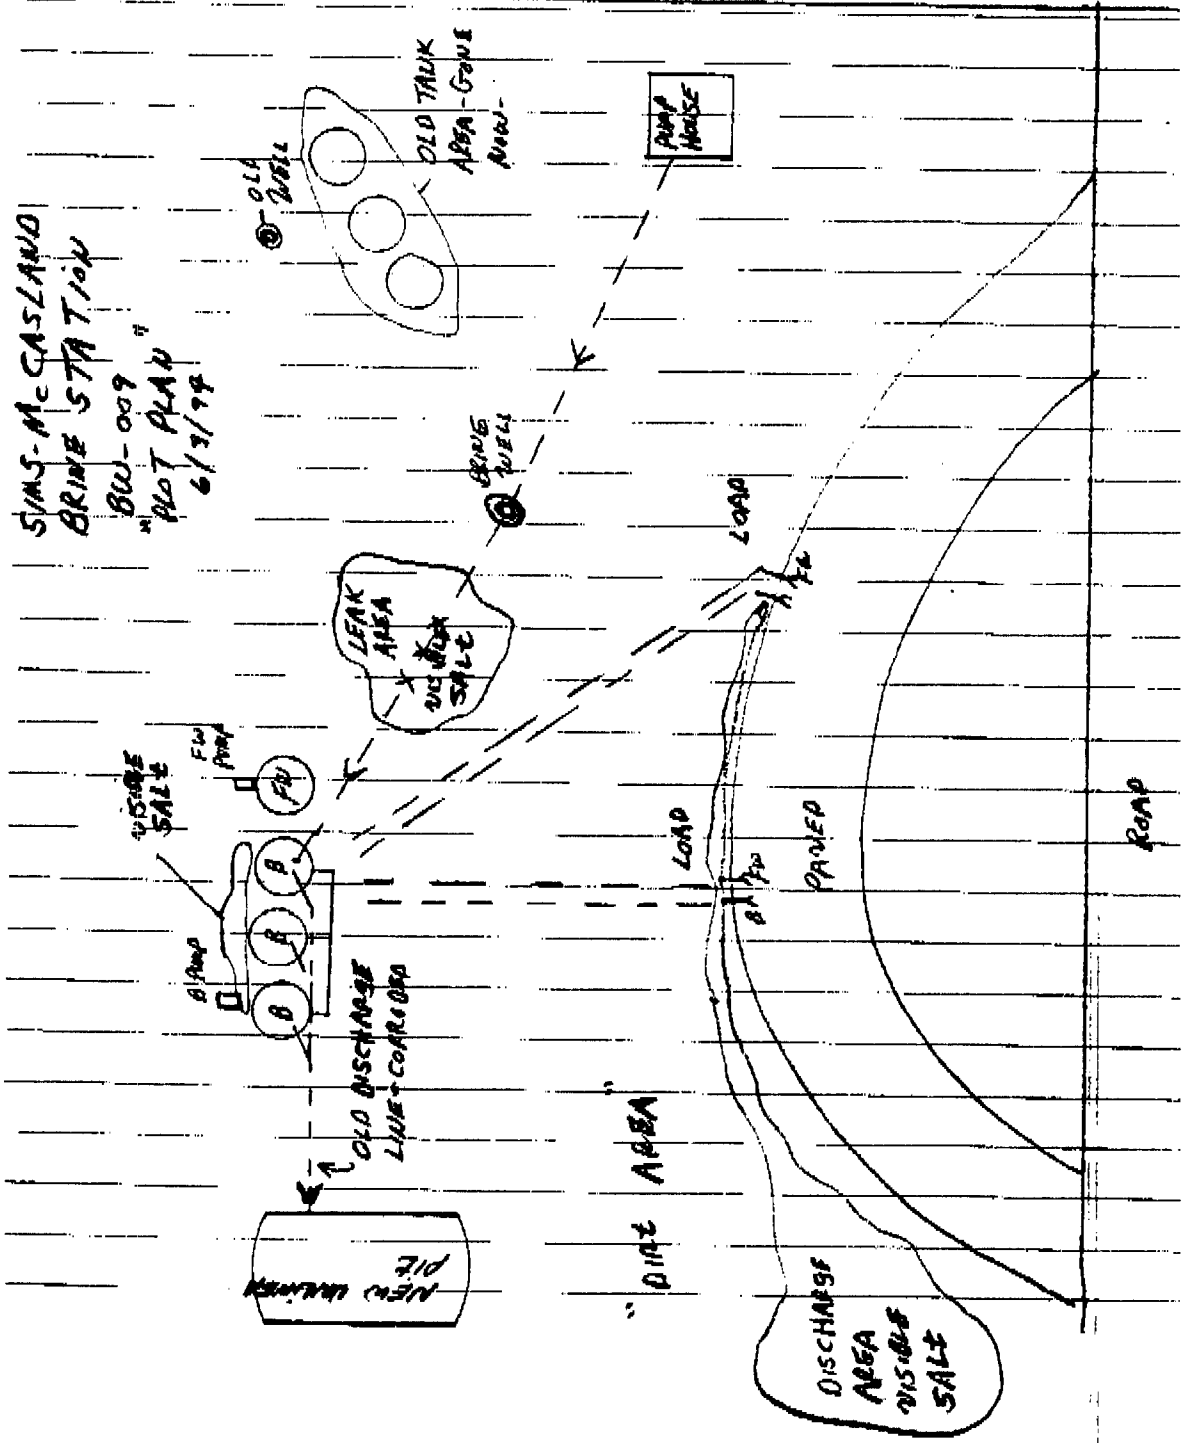 SIMS-McCASLAND
BRINE STATION
BW-009
"PLOT PLAN"
OLD
WELL
OLD TANK
AREA-GONE
NOW-
PUMP
HOUSE
BRINE
WELL
LEAK
AREA
VISIBLE
SALt
VISIBLE
SALt
FW
PUMP
FW
B PUMP
B
B
B
OLD DISCHARGE
LINE-CORRODED
NEW UNLINED
PIt
LOAD
FW
LOAD
B
FW
PAVED
ROAD
"DIRt AREA"
DISCHARGE
AREA
VISIBLE
SALt